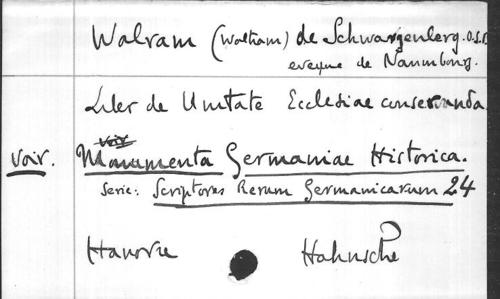 Walram (Waltram) de Schwarzenberg. O.S.B
eveque de Naumbourg.
Liber de Unitate Ecclesiae conservanda.
voir
voir. Monumenta Germaniae Historica.
Serie: Scriptores Rerum Germanicarum 24
Hanovre Hahnsche